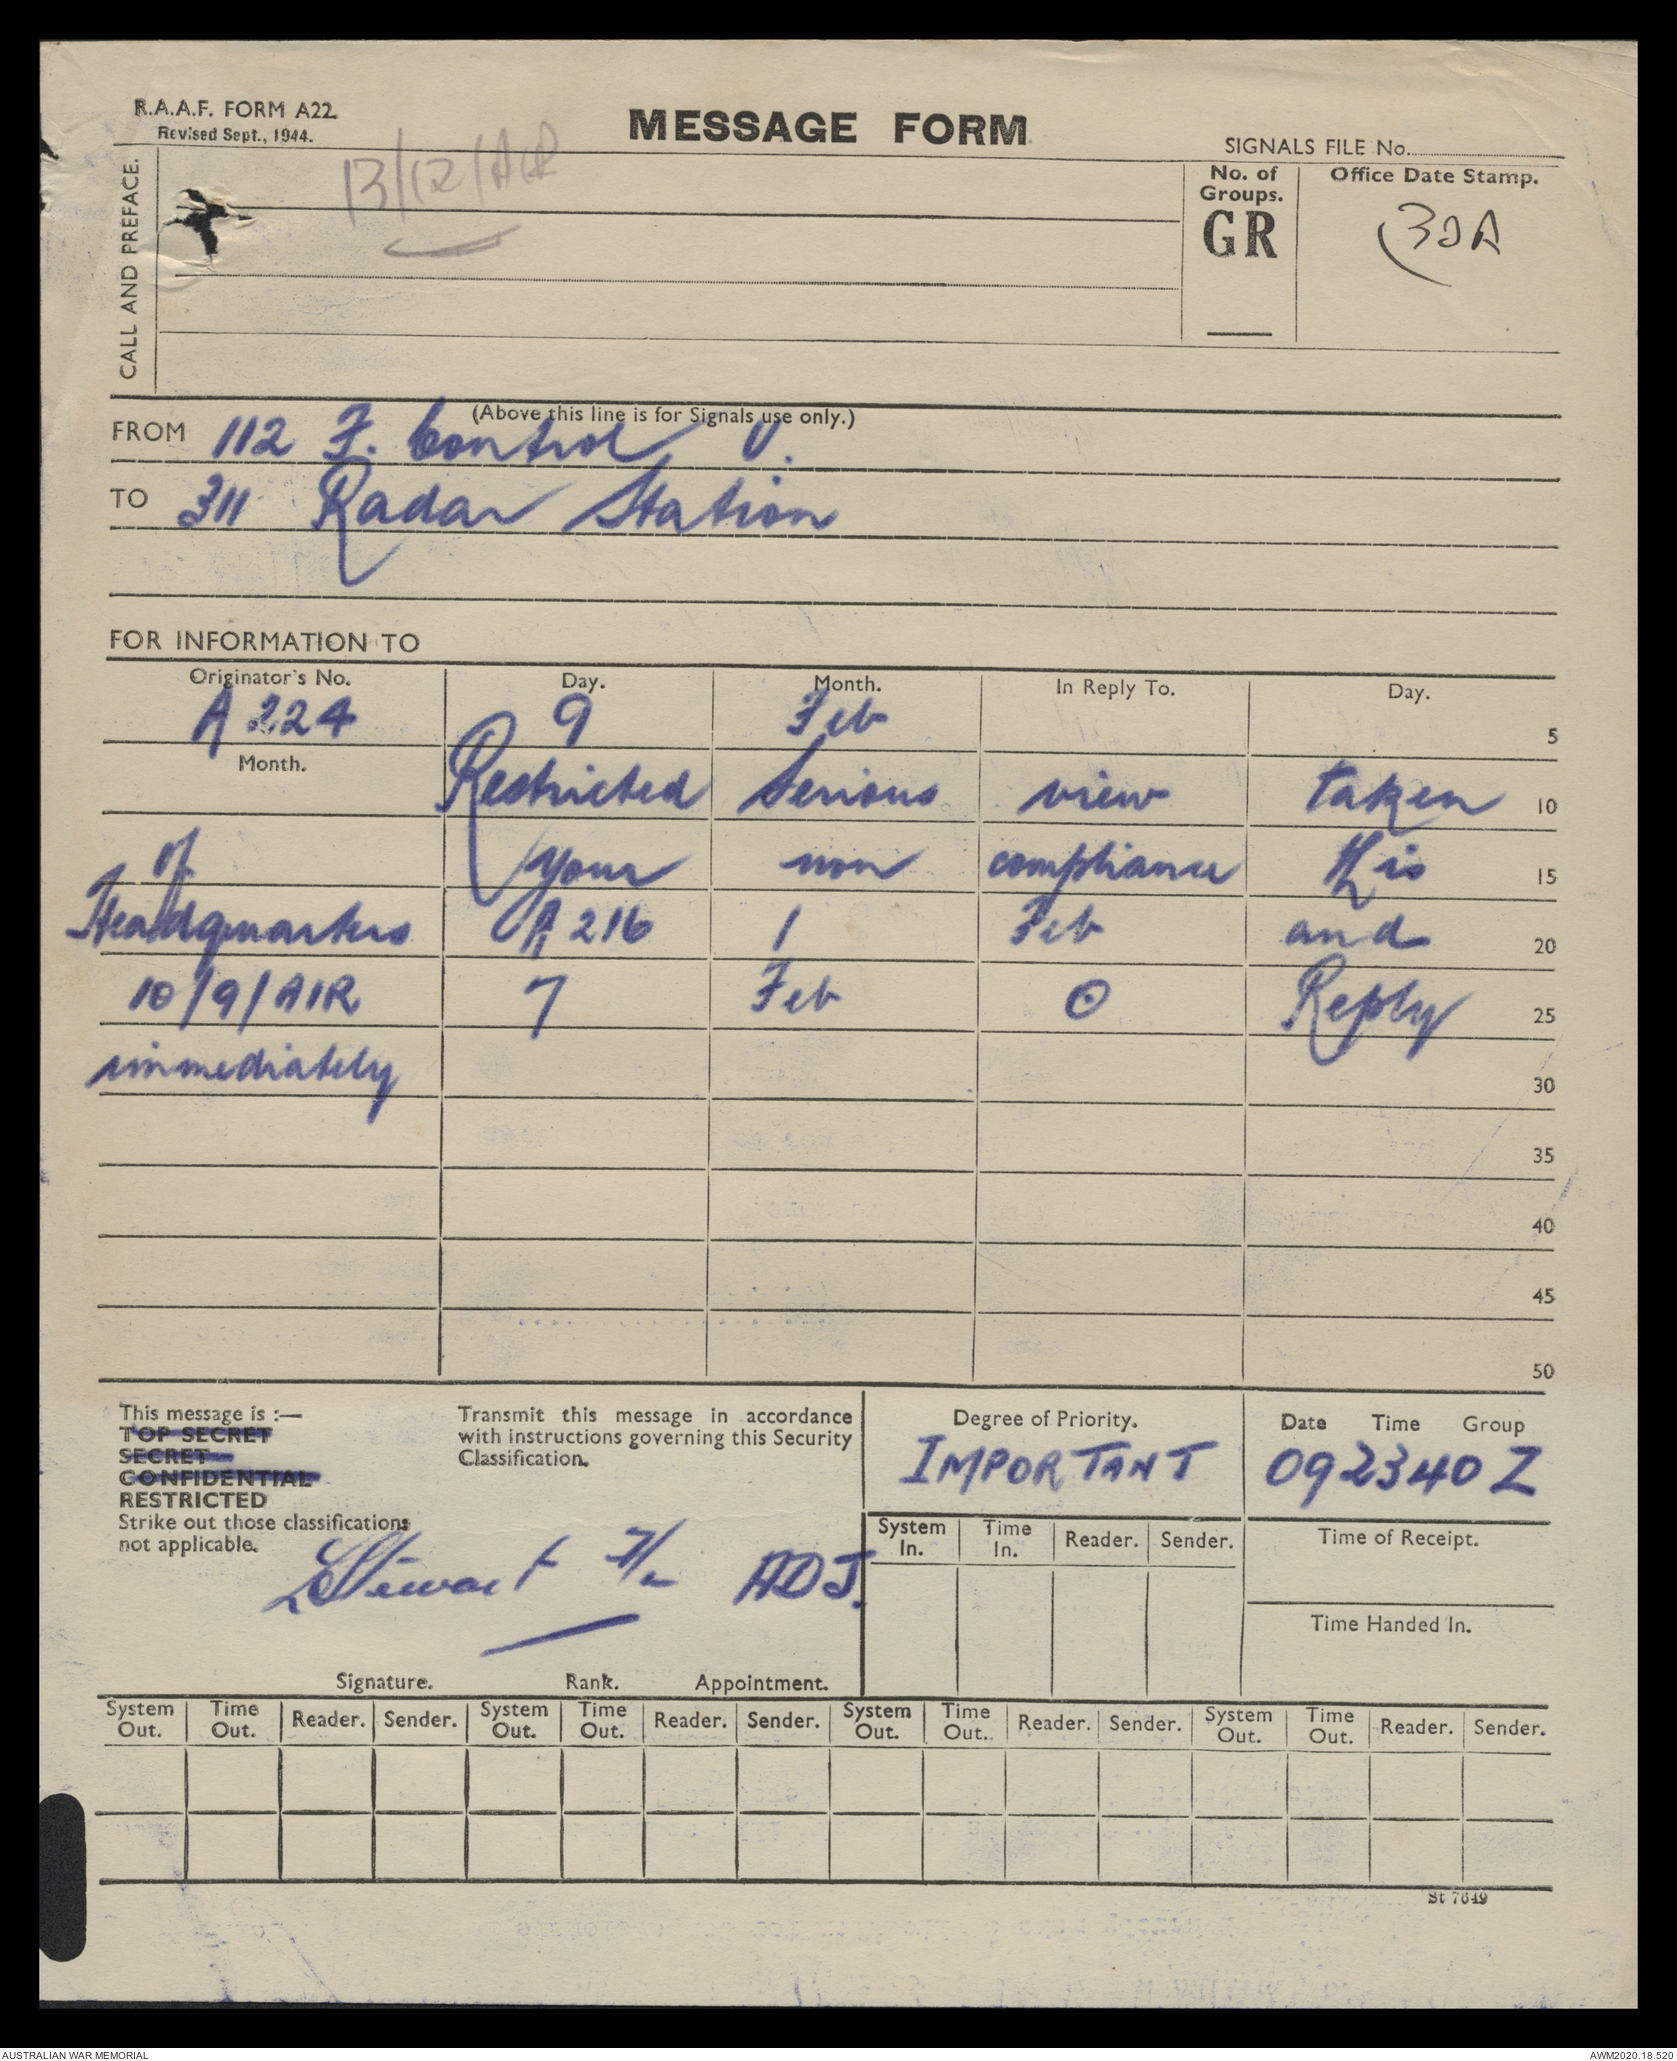 R.A.A.F. FORM A22.
Revised Sept., 1944.
MESSAGE FORM
SIGNALS FILE No.
13/12/AIR
CALL AND PREFACE.
No. of Groups.
GR
Office Date Stamp.
30A
(Above this line is for Signals use only.)
FROM 112 F. Control U.
TO 311 Radar Station
FOR INFORMATION TO
Originator's No. Day. Month. In Reply To. Day.
A 224 9 Feb 5
Month. Restricted Serious view taken 10
of your non compliance this 15
Headquarters A 216 1 Feb and 20
10/9/AIR 7 Feb ⊙ Reply 25
immediately 30
35
40
45
50
This message is :—
TOP SECRET
SECRET
CONFIDENTIAL
RESTRICTED
Strike out those classifications
not applicable.
Transmit this message in accordance
with instructions governing this Security
Classification.
Degree of Priority.
IMPORTANT
Date Time Group
092340Z
System In. Time In. Reader. Sender.
Time of Receipt.
Time Handed In.
Stewart F/L ADJ.
Signature. Rank. Appointment.
System Out. Time Out. Reader. Sender. System Out. Time Out. Reader. Sender. System Out. Time Out. Reader. Sender. System Out. Time Out. Reader. Sender.
St 7649
AUSTRALIAN WAR MEMORIAL
AWM2020.18.520